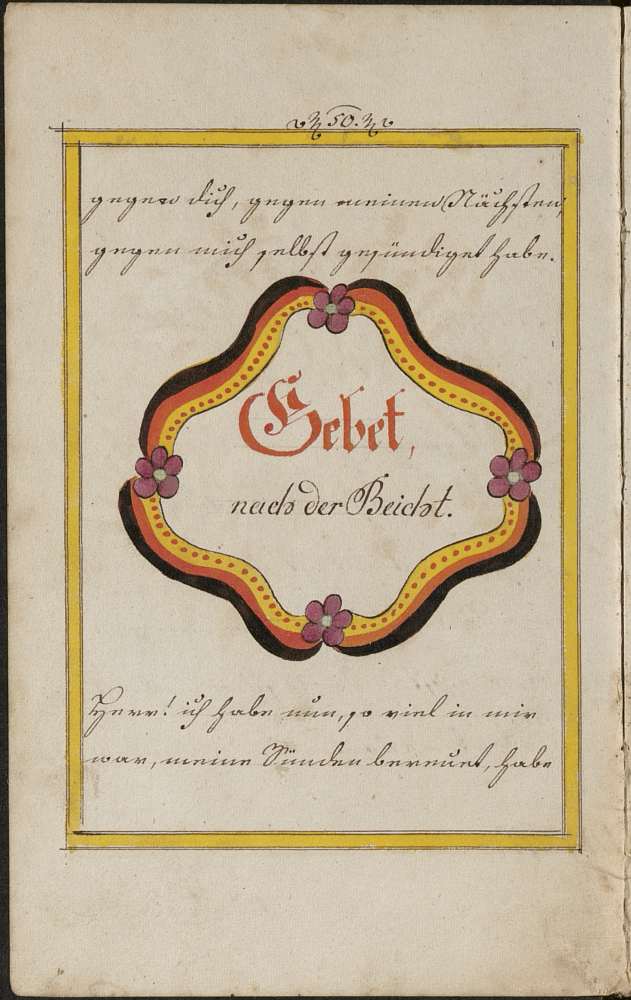 50.
gegen dich, gegen meinen Nächsten,
gegen mich selbst gesündiget habe.
Gebet,
nach der Beicht.
Herr! ich habe nun, so viel in mir
war, meine Sünden bereuet, habe